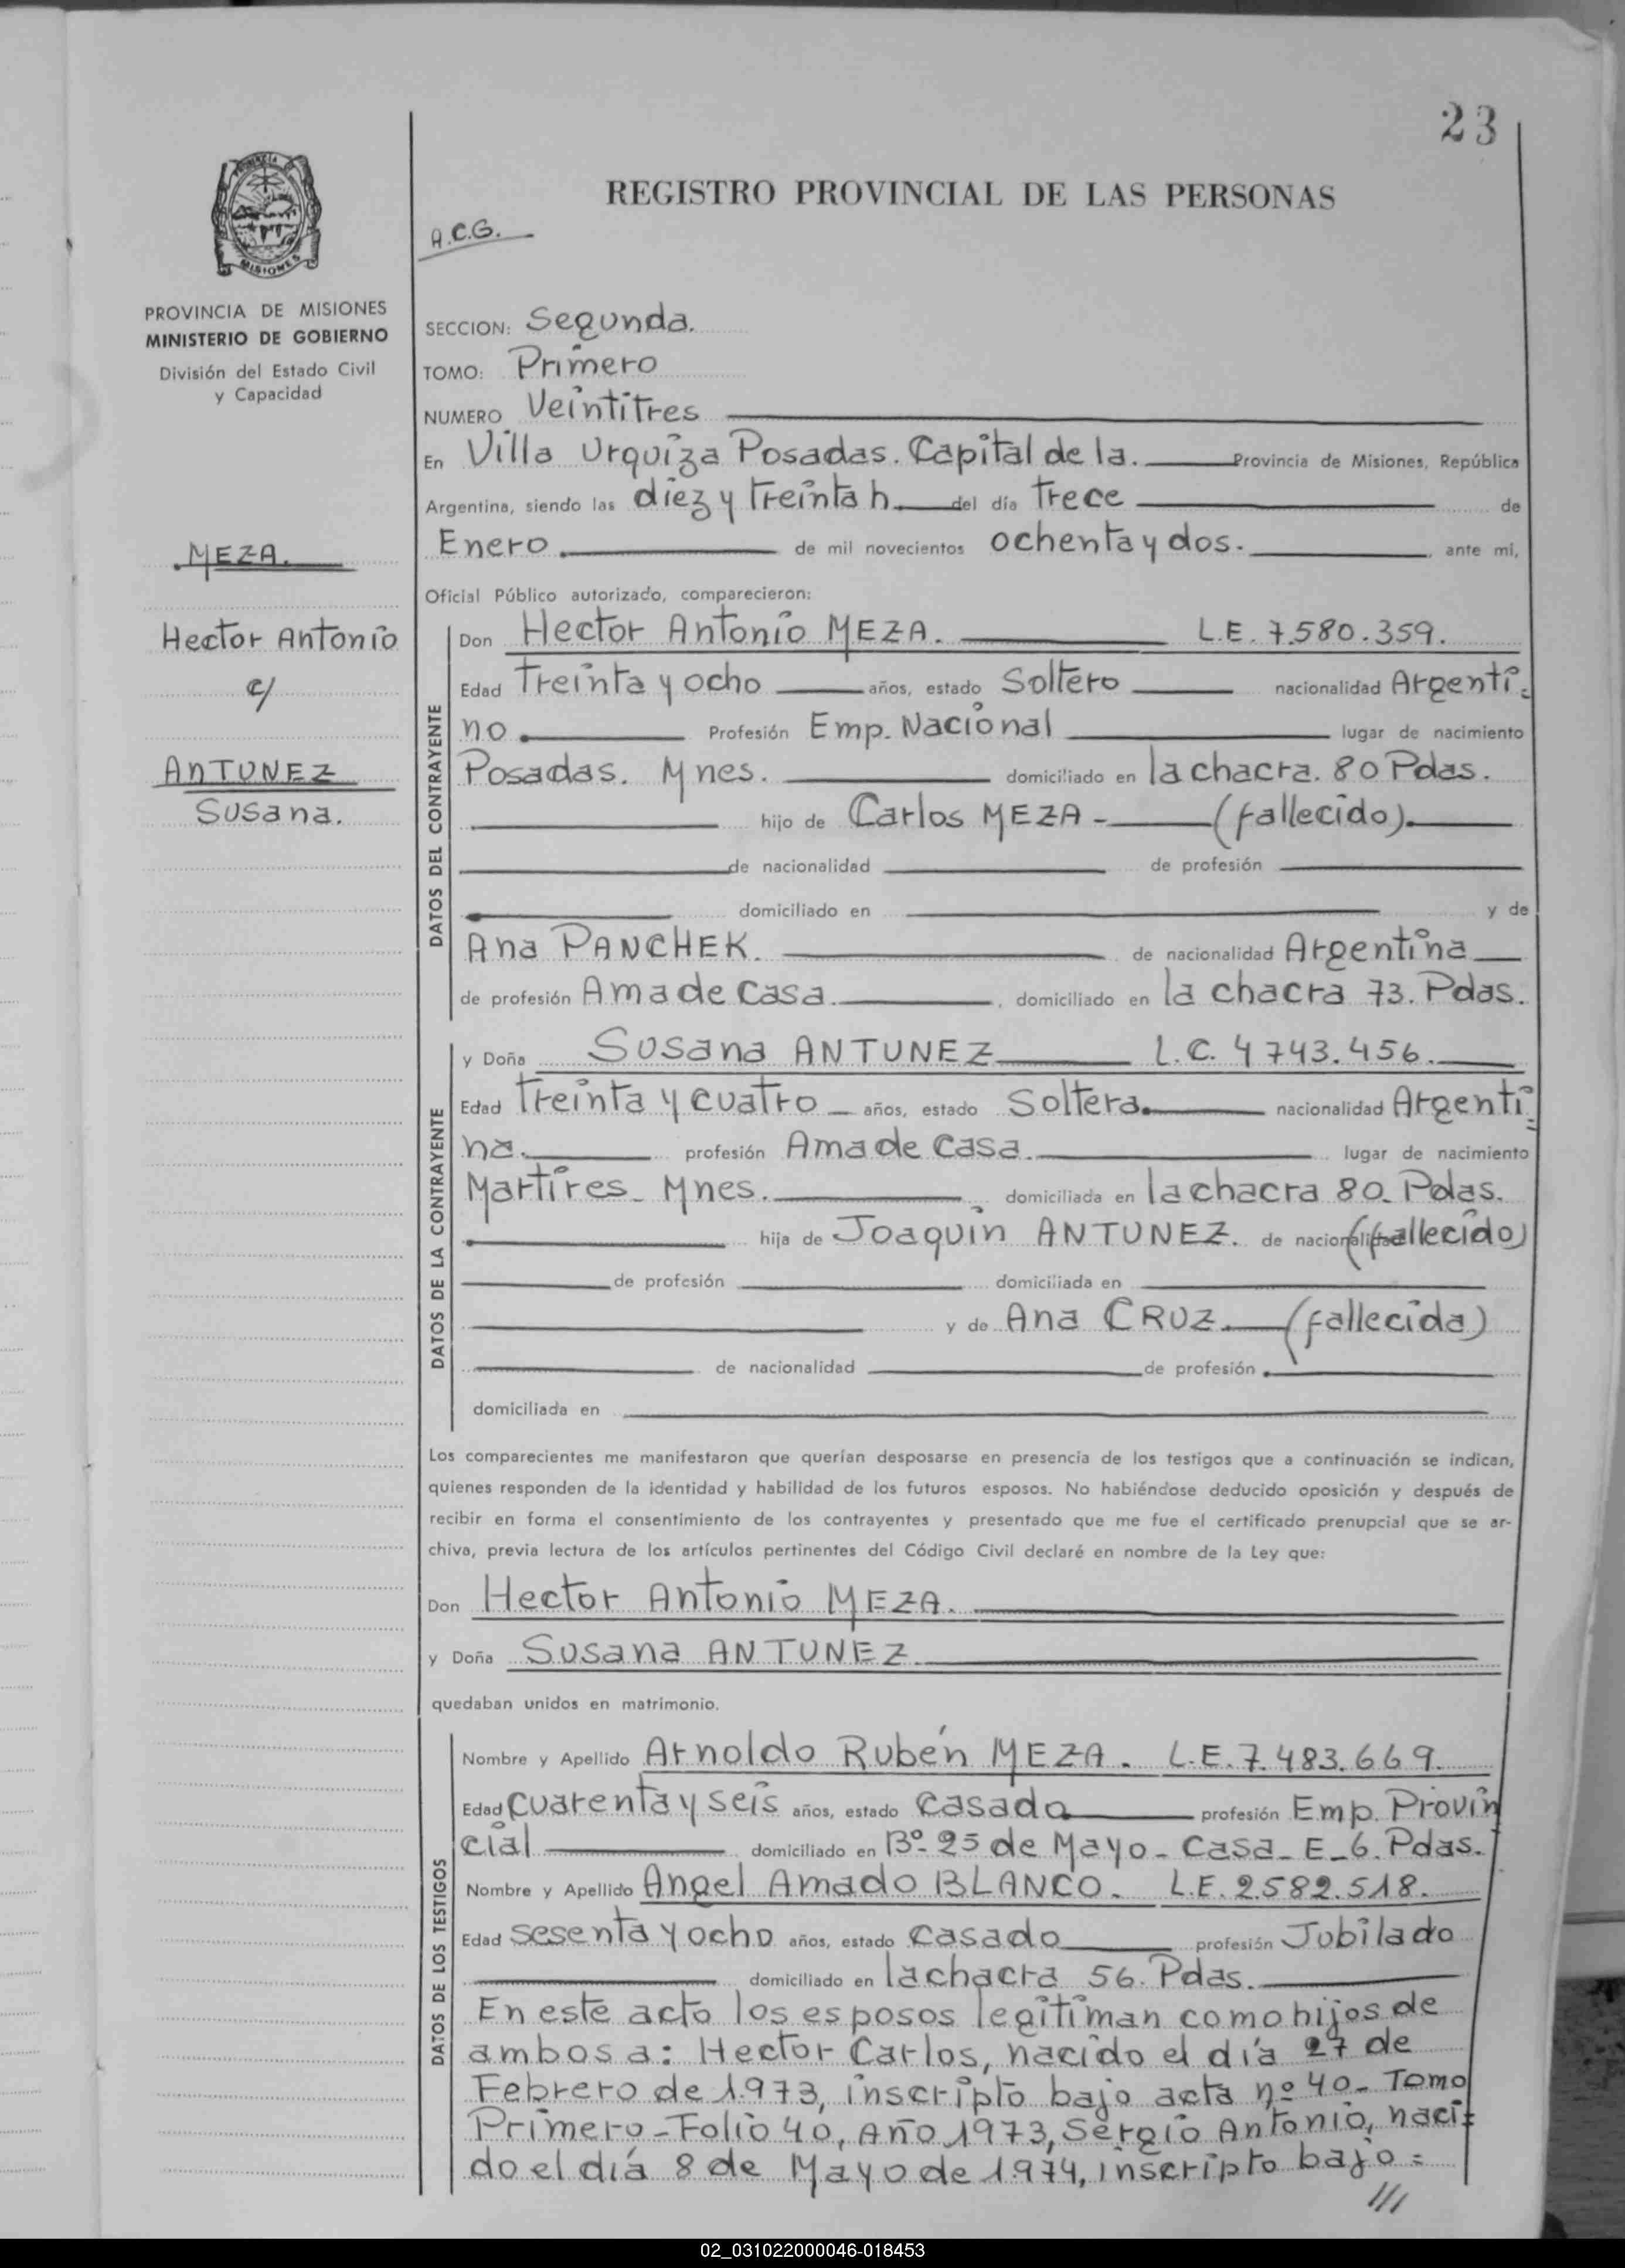 23
PROVINCIA
MISIONES
REGISTRO PROVINCIAL DE LAS PERSONAS
A.C.G.
PROVINCIA DE MISIONES
MINISTERIO DE GOBIERNO
División del Estado Civil
y Capacidad
SECCION: Segunda.
TOMO: Primero
NUMERO Veintitres
En Villa Urquiza Posadas. Capital de la. Provincia de Misiones, República
Argentina, siendo las diez y treinta h. del día trece de
Enero. de mil novecientos ochenta y dos. ante mi,
MEZA.
Hector Antonio
c/
ANTUNEZ
Susana.
Oficial Público autorizado, comparecieron:
DATOS DEL CONTRAYENTE
Don Hector Antonio MEZA. L.E. 7.580.359.
Edad Treinta y ocho años, estado Soltero nacionalidad Argenti-
no. Profesión Emp. Nacional lugar de nacimiento
Posadas. Mnes. domiciliado en la chacra. 80 Pdas.
hijo de Carlos MEZA - (fallecido).
de nacionalidad de profesión
domiciliado en y de
Ana PANCHEK. de nacionalidad Argentina
de profesión Ama de casa. , domiciliado en la chacra 73. Pdas.
DATOS DE LA CONTRAYENTE
y Doña Susana ANTUNEZ L.C. 4 743.456.
Edad Treinta y cuatro años, estado Soltera. nacionalidad Argenti=
na. profesión Ama de casa. lugar de nacimiento
Martires - Mnes. domiciliada en la chacra 80. Pdas.
hija de Joaquin ANTUNEZ. de nacionalidad (fallecido)
de profesión domiciliada en
y de Ana CRUZ. (fallecida)
de nacionalidad de profesión
domiciliada en
Los comparecientes me manifestaron que querían desposarse en presencia de los testigos que a continuación se indican,
quienes responden de la identidad y habilidad de los futuros esposos. No habiéndose deducido oposición y después de
recibir en forma el consentimiento de los contrayentes y presentado que me fue el certificado prenupcial que se ar-
chiva, previa lectura de los artículos pertinentes del Código Civil declaré en nombre de la Ley que:
Don Hector Antonio MEZA.
y Doña Susana ANTUNEZ
quedaban unidos en matrimonio.
DATOS DE LOS TESTIGOS
Nombre y Apellido Arnoldo Rubén MEZA. L.E. 7.483.669.
Edad cuarenta y seis años, estado casado profesión Emp. Provin
cial domiciliado en Bº 25 de Mayo - Casa - E - 6. Pdas.
Nombre y Apellido Angel Amado BLANCO. L.E. 2.582.518.
Edad sesenta y ocho años, estado casado profesión Jubilado
domiciliado en la chacra 56. Pdas.
En este acto los esposos legitiman como hijos de
ambos a: Hector Carlos, nacido el día 27 de
Febrero de 1.973, inscripto bajo acta nº 40 - Tomo
Primero - Folio 40, Año 1973, Sergio Antonio, naci=
do el día 8 de Mayo de 1.974, inscripto bajo =
///
02_031022000046-018453